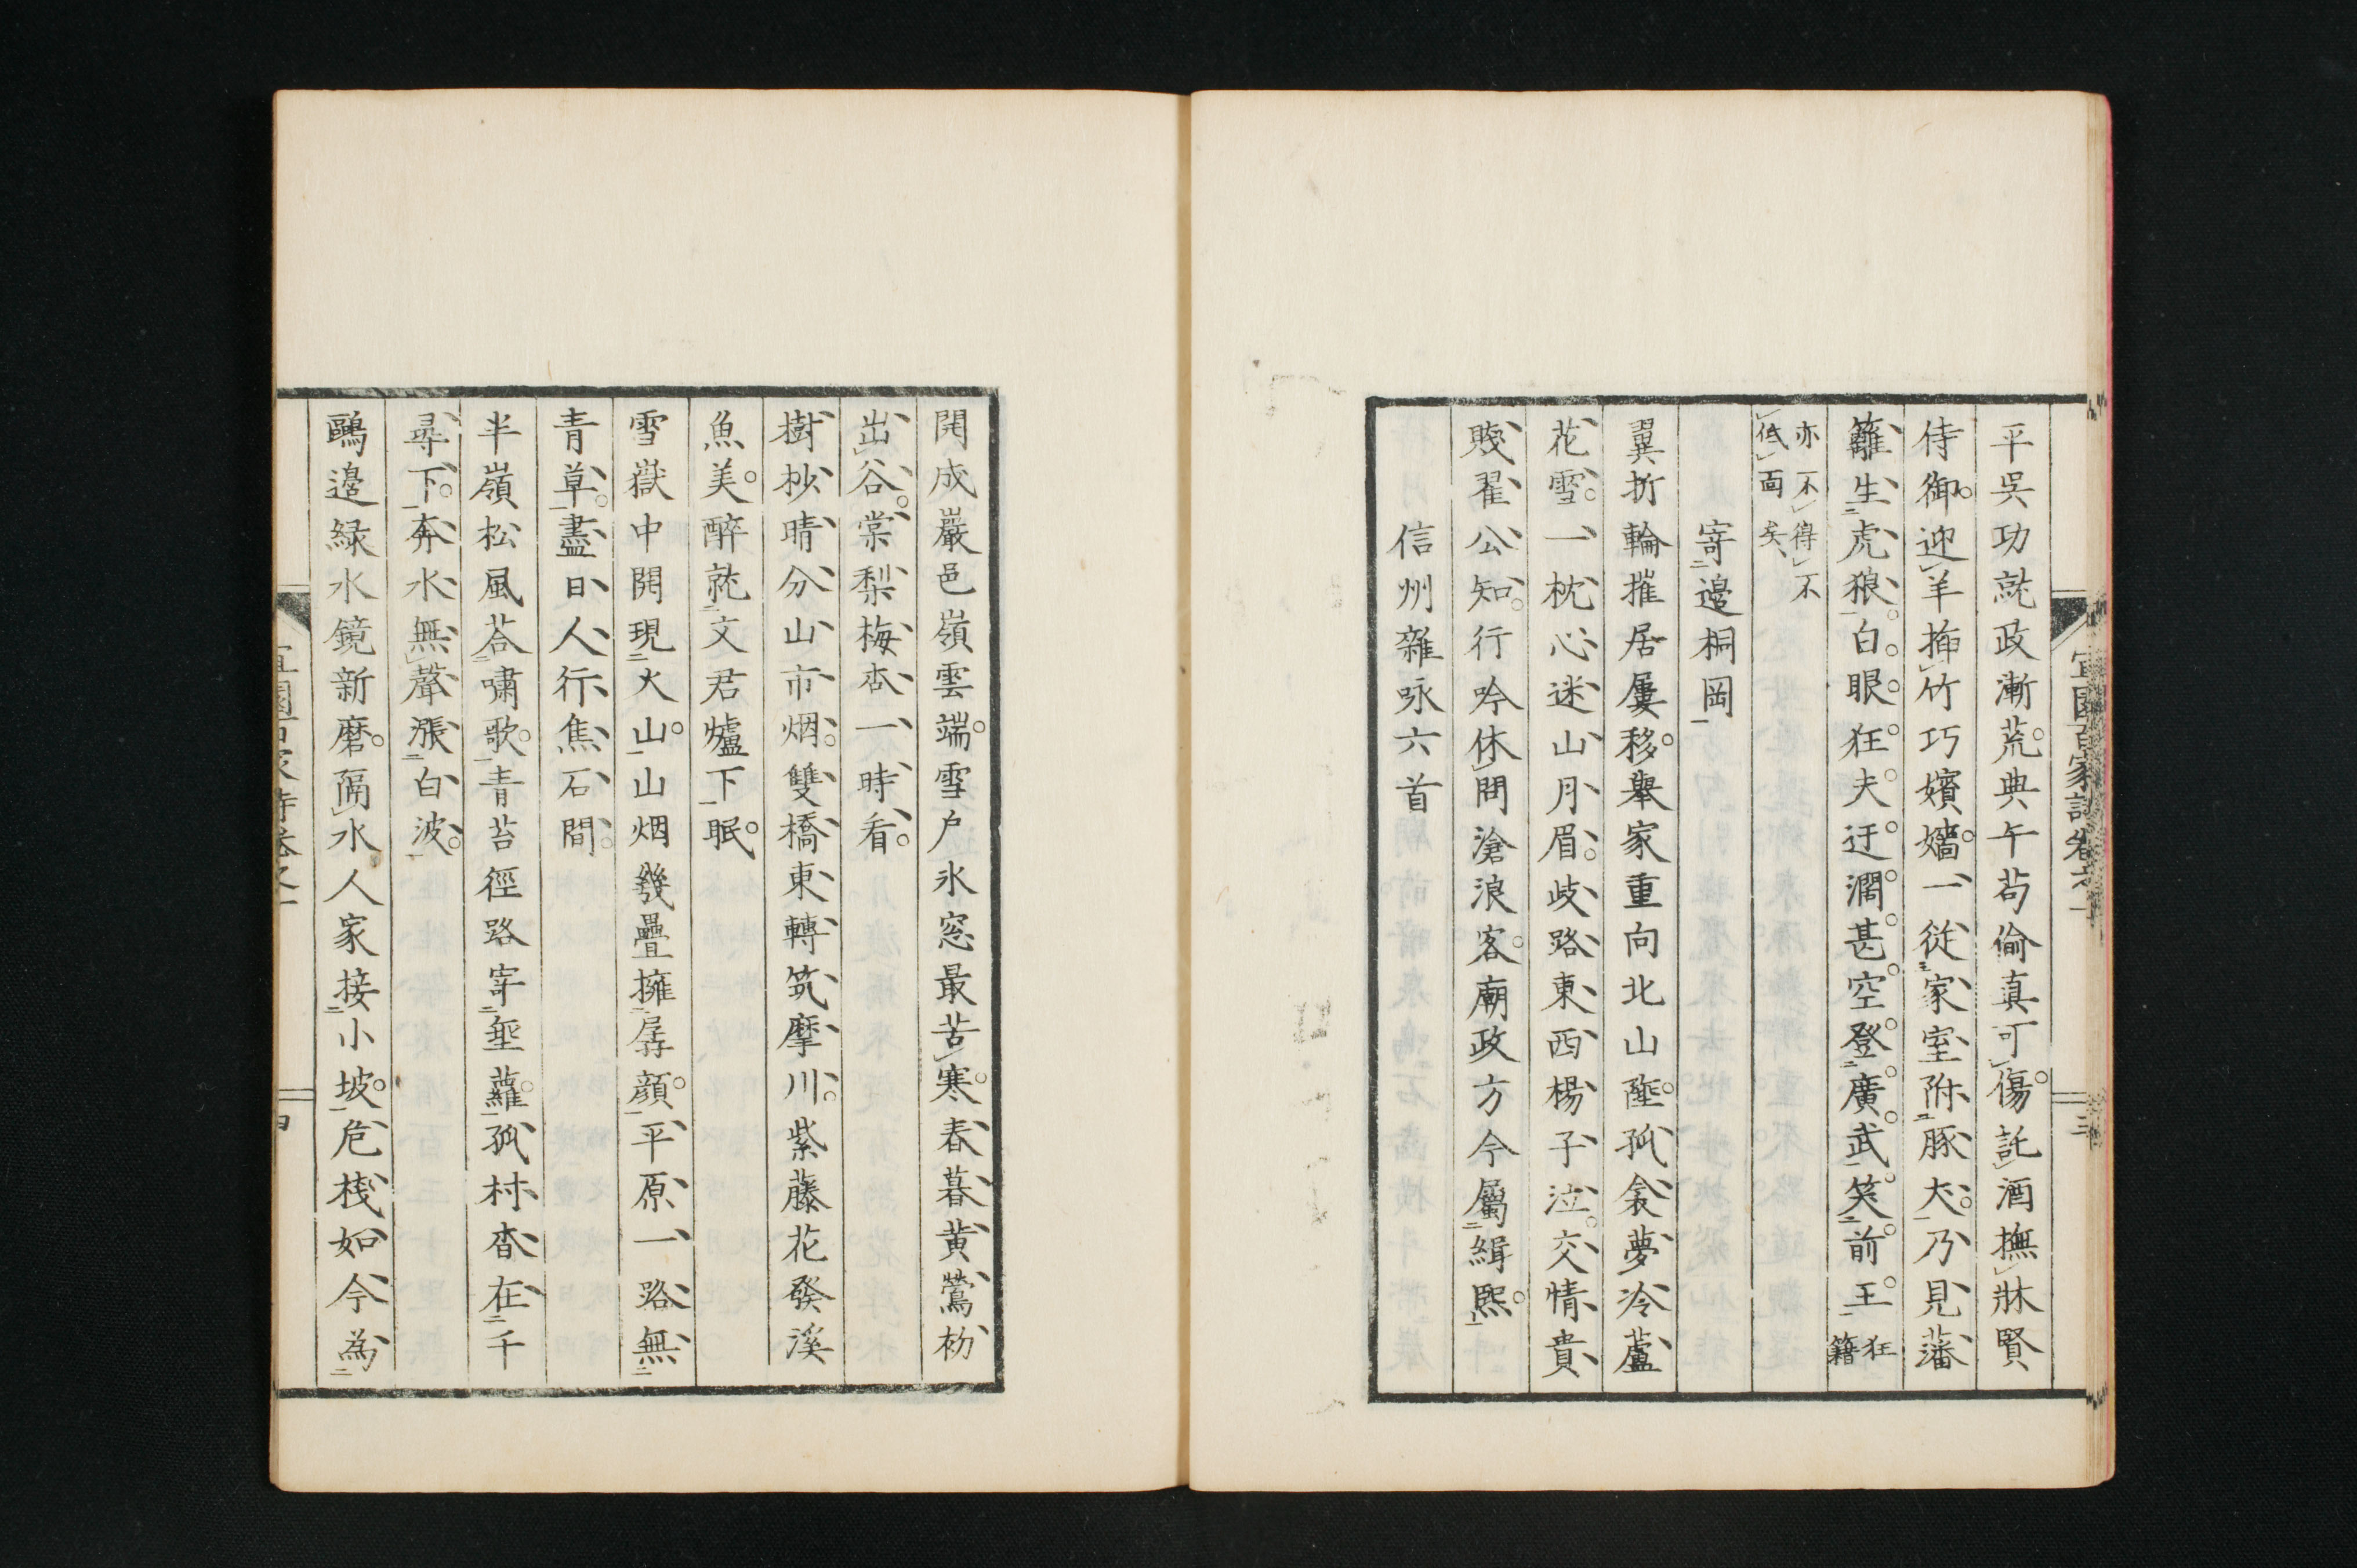 平呉功就政漸荒典午苟偷真可傷託酒撫牀賢
侍御迎羊挿竹巧嬪嬙一從家室附豚犬乃見藩
籬生虎狼白眼狂夫迂濶甚空登廣武笑前王狂籍
亦不得不
低面矣
寄邉桐岡
翼折輪摧居屢移舉家重向北山陲孤衾夢冷蘆
花雪一枕心迷山月眉歧路東西楊子泣交情貴
賤翟公知行吟休問滄浪客廟政方今屬緝熙
信州雜咏六首
宜園百家詩卷之一
三
開成巖邑嶺雲端雪戸氷窓最苦寒春暮黄鶯初
出谷棠梨梅杏一時看
樹杪晴分山市烟雙橋東轉筑摩川紫藤花發溪
魚美醉就文君爐下眠
雪嶽中開現火山山烟幾疊擁孱顔平原一路無
青草盡日人行焦石間
半嶺松風荅嘯歌青苔徑路穿垂蘿孤村杳在千
尋下奔水無聲漲白波
鷗邉緑水鏡新磨隔水人家接小坡危棧如今為
宜園百家詩卷之一
四